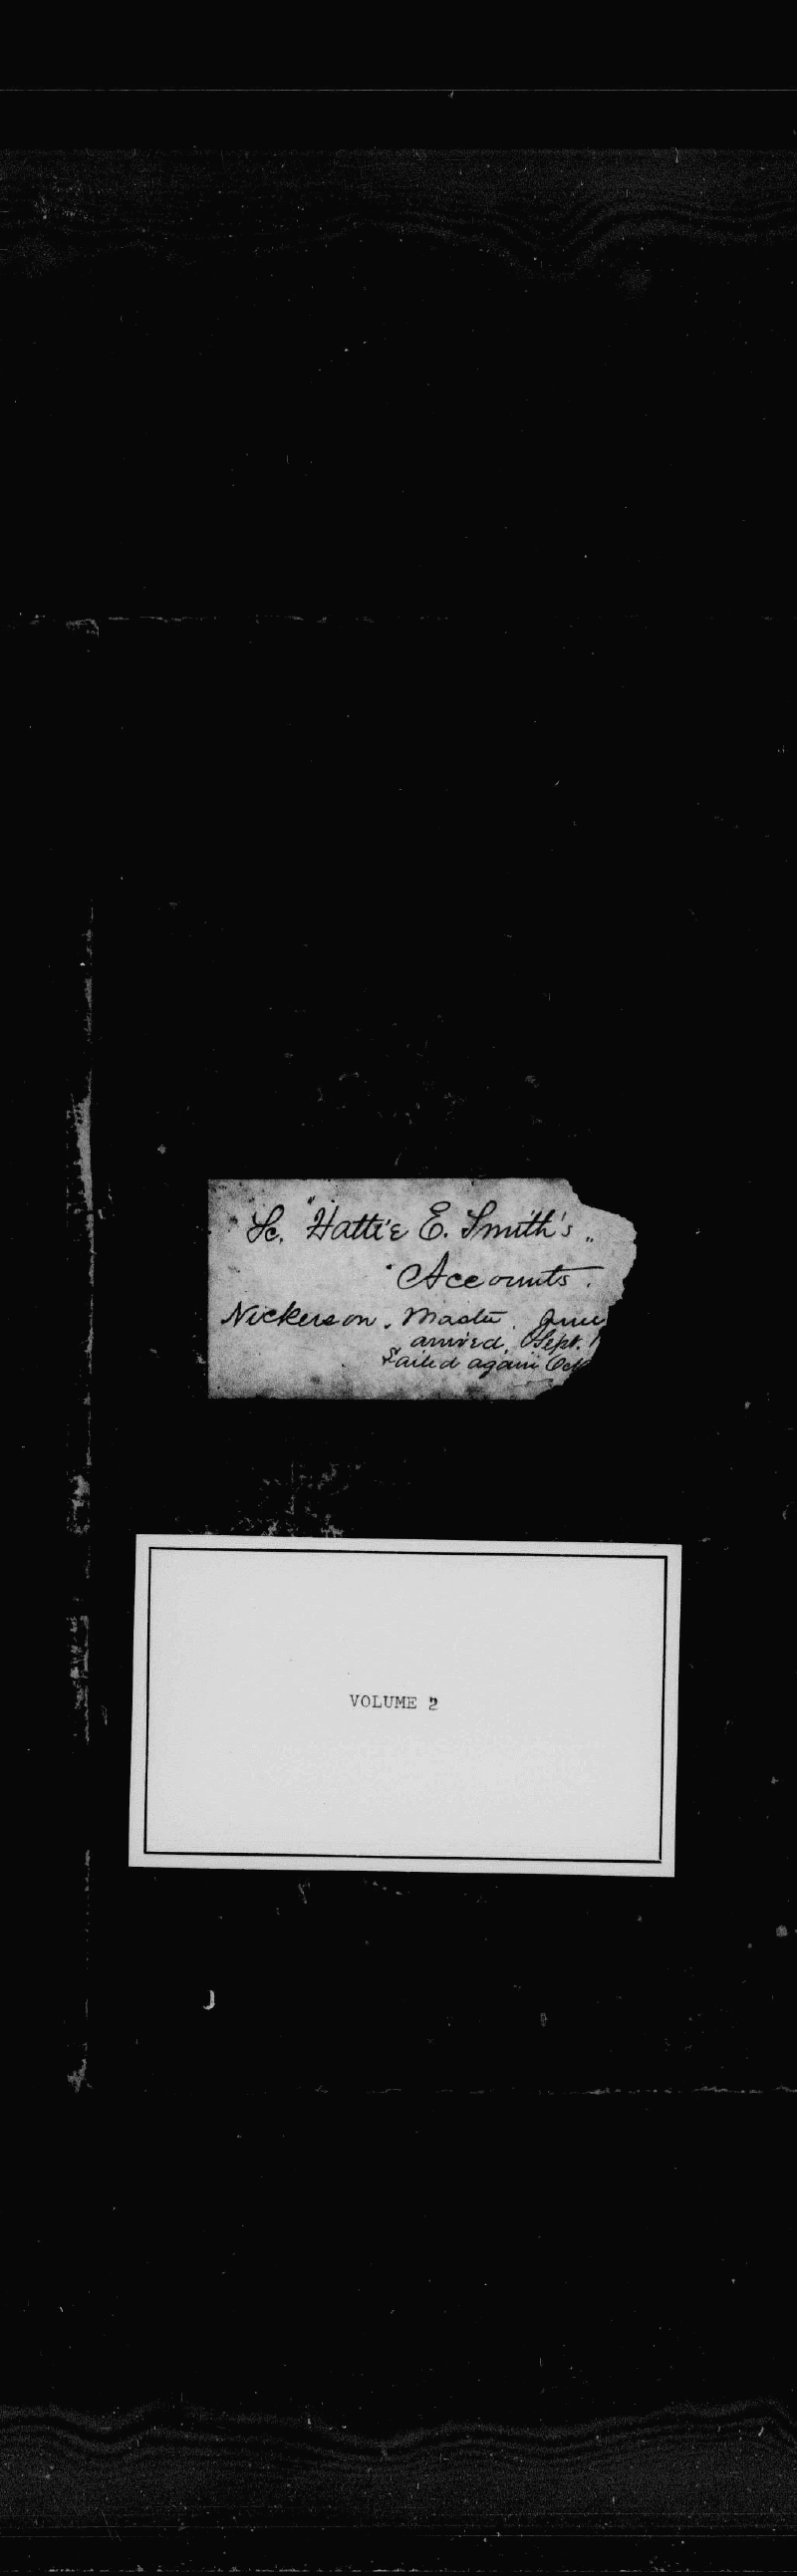 Sc. "Hattie E. Smith's"
Accounts.
Nickerson. Master. June
arrived, Sept. 1
Sailed again Oct
VOLUME 2